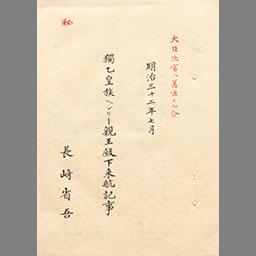 秘
大臣次官ヘ差出シタル分
明治三十二年七月
獨乙皇族ヘンリー親王殿下来航記事
長崎省吾